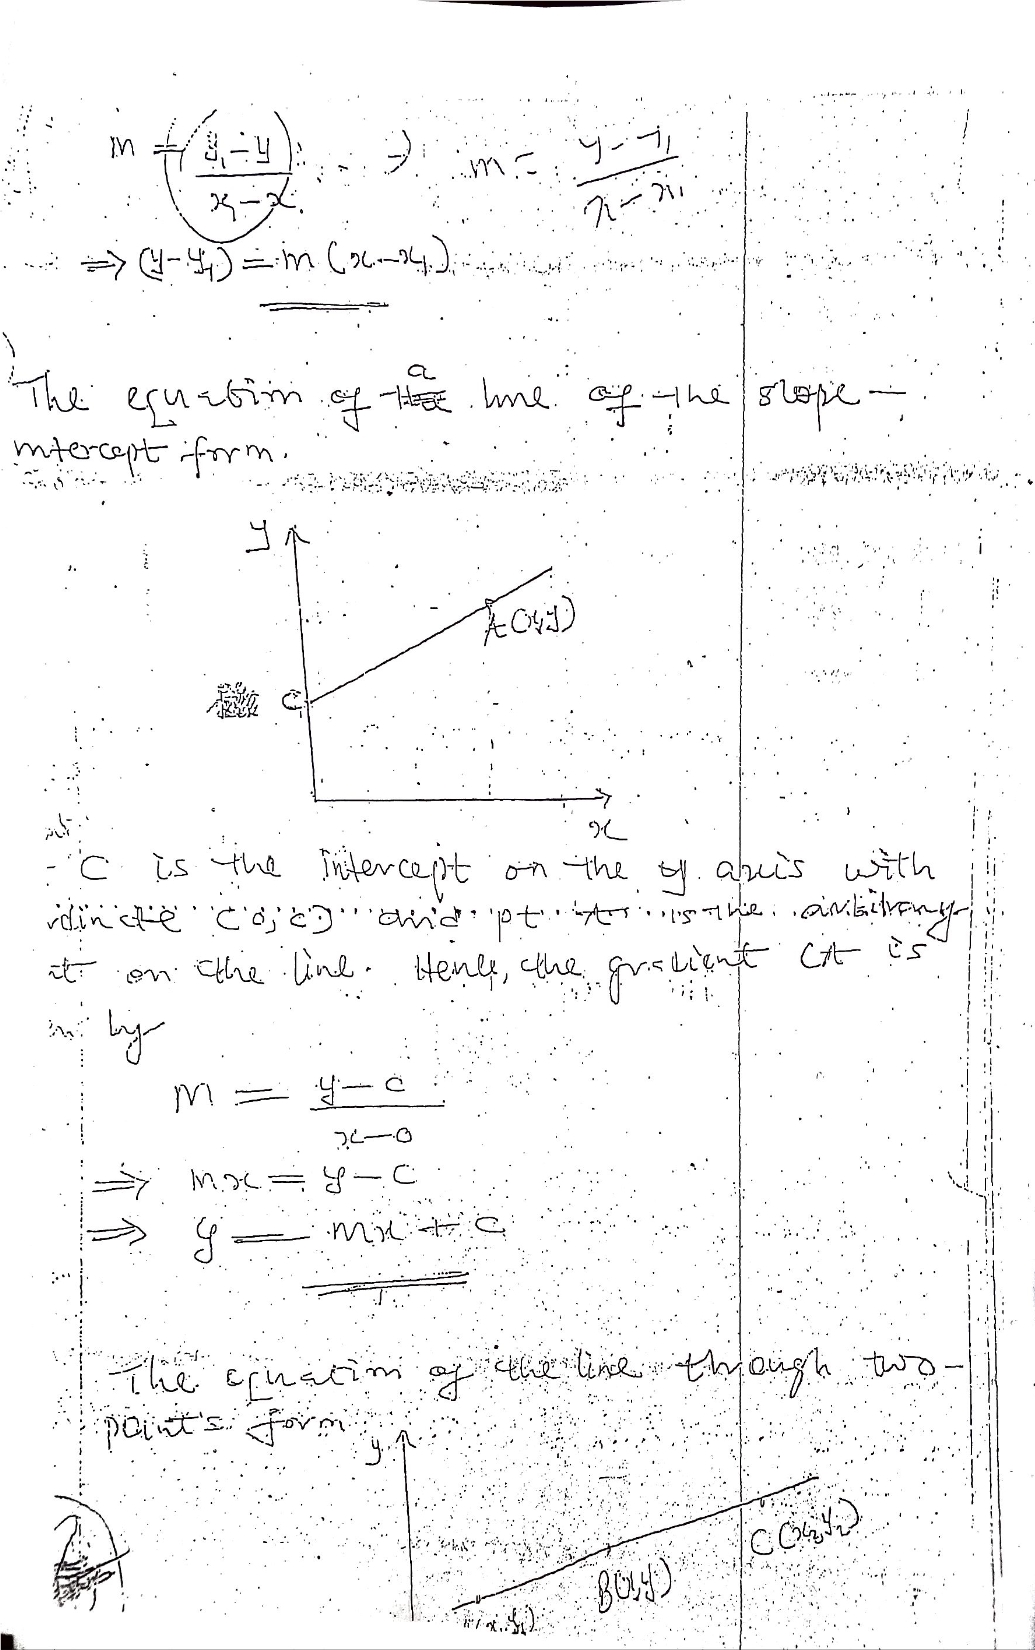 m = (y₁-y)/(x₁-x) ⇒ m = (y-y₁)/(x-x₁)
⇒ (y-y₁) = m(x-x₁)
The equation of a line of the slope-
intercept form.
y
A(x,y)
C
x
C is the intercept on the y axis with
(0,c) and pt A is the arbitrary
on the line. Hence, the gradient CA is
by
M = (y-c)/(x-0)
⇒ mx = y-c
⇒ y = mx + c
The equation of the line through two-
point's form
y
C(x₂,y₂)
B(x,y)
(x₁,y₁)